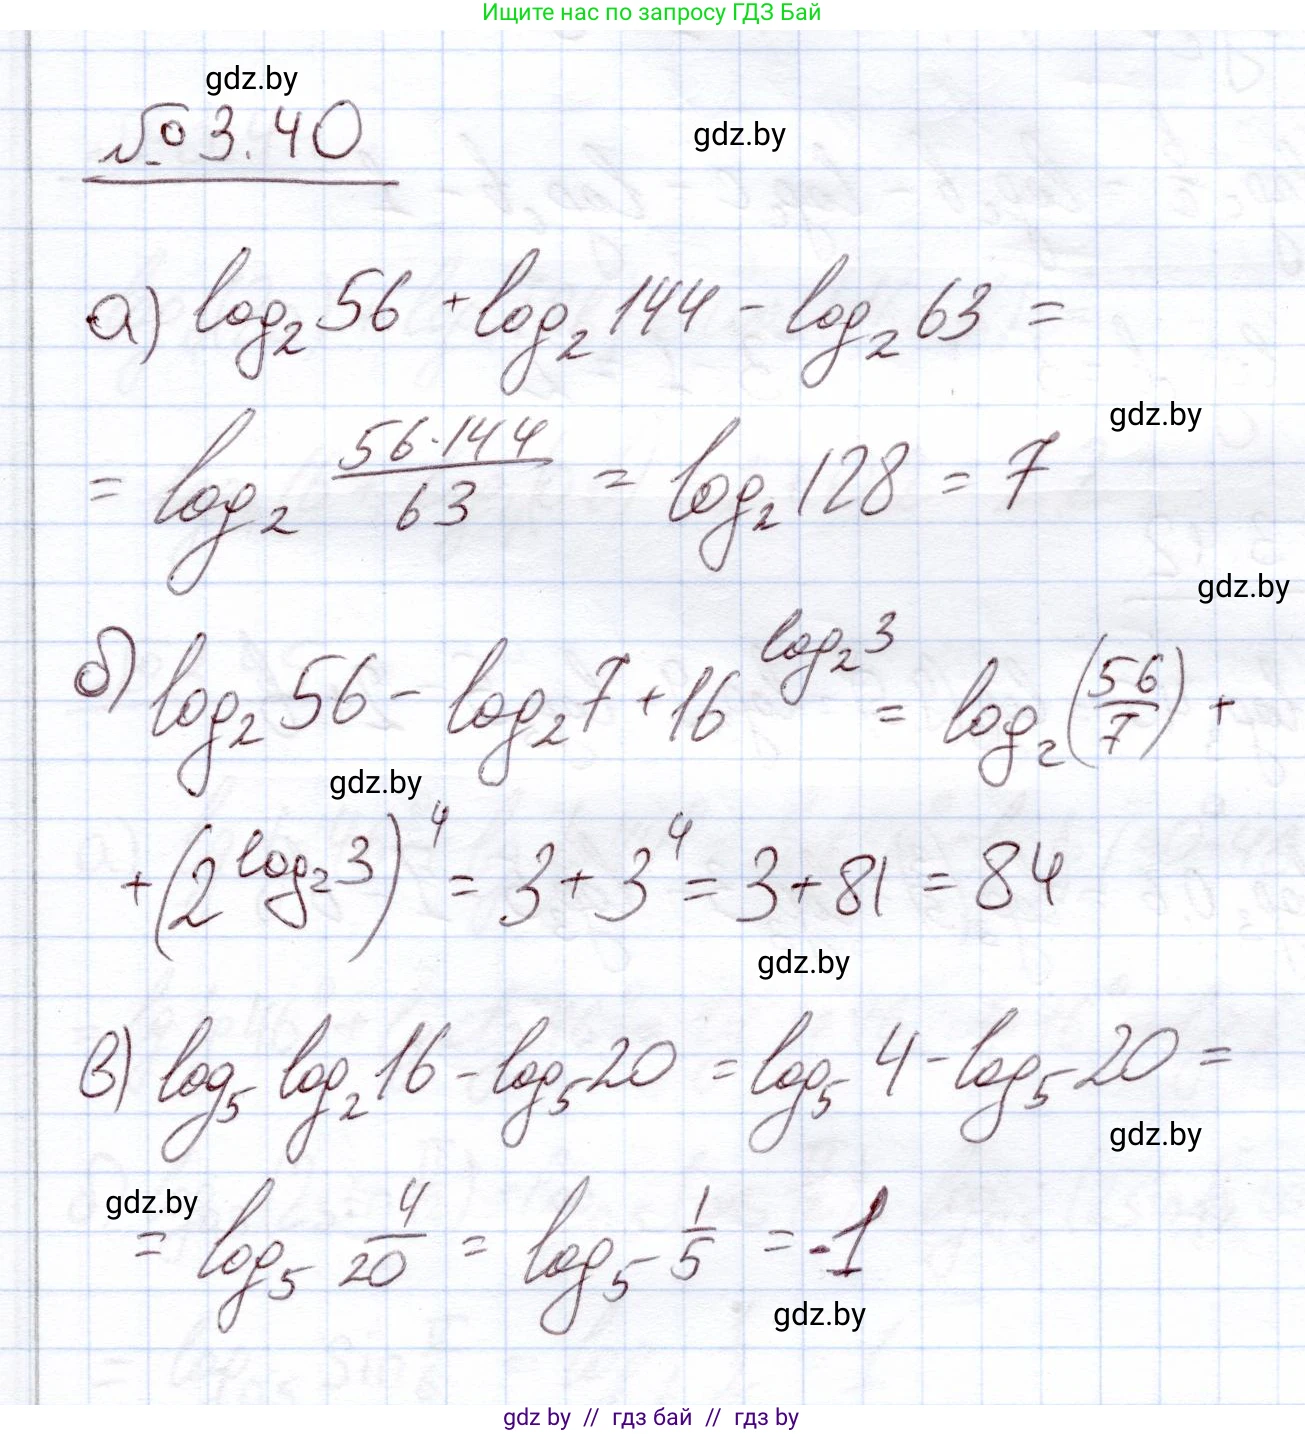 Ищите нас по запросу ГДЗ Бай
gdz.by
№ 3.40
gdz.by
а) log₂ 56 + log₂ 144 - log₂ 63 =
gdz.by
= log₂ (56·144)/63 = log₂ 128 = 7
gdz.by
б) log₂ 56 - log₂ 7 + 16^(log₂ 3) = log₂ (56/7) +
gdz.by
+ (2^(log₂ 3))⁴ = 3 + 3⁴ = 3 + 81 = 84
gdz.by
в) log₅ log₂ 16 - log₅ 20 = log₅ 4 - log₅ 20 =
gdz.by
gdz.by
= log₅ 4/20 = log₅ 1/5 = -1
gdz.by
gdz by // гдз бай // гдз by